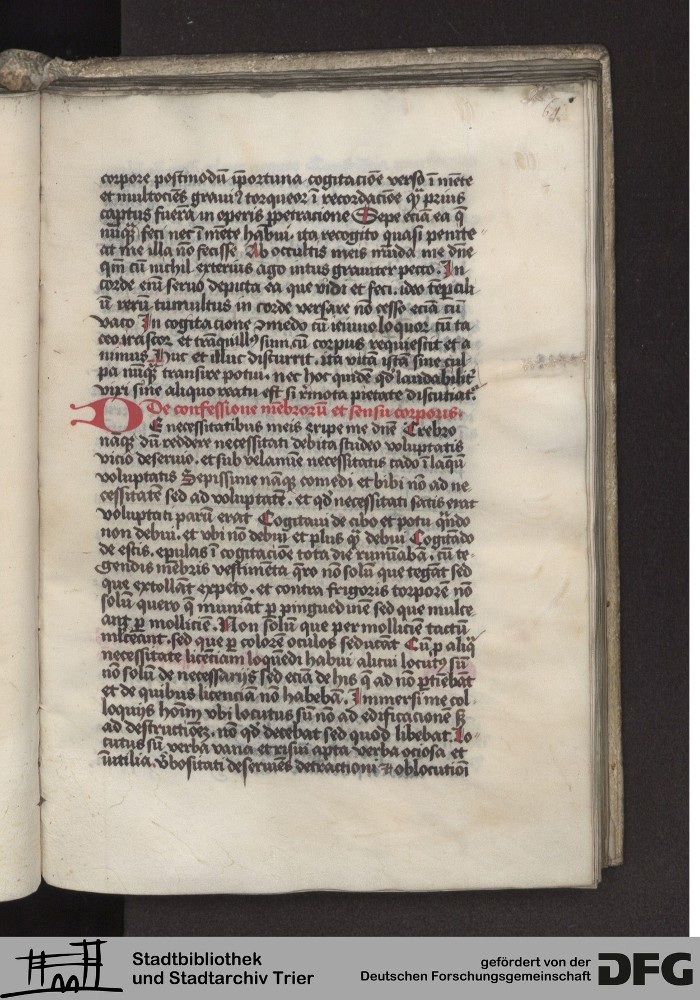 61
corpore postmodū īportuna cogitacōe verso ī mēte
et multociēs graviꝰ torqueor ī recordacōe qͣ prius
captus fuerā in operis ꝑpetracione Sepe eciā ea q̄
nūqͣ feci nec ī mēte habui. ita recogito quasi penite
at me illa nō fecisse. Ab occultis meis mūda me dn̄e
qm̄ cū nichil exterius ago intus graviter pecco. In
corde enī servo depicta ea que vidi et feci. ideo
ū rerū tumultus in corde versare nō cesso eciā cū
vaco In cogitacione cū ieiuno loquor cū ta
ceo irascor et trāquillꝰ sum. cū corpus requiescit et a
nimus huc et illuc discurrit. ita vitā istā sine cul
pa nūqͣ transire potui. nec hoc quidē qd̄ laudabilitͤ
vixi sine aliquo reatu est si rͤmota pietate discutiatͬ
De confessione mēbrorū et sensū corporis.
DE necessitatibus meis eripe me dn̄e Crebro
nāqͣ dū reddere necessitati debita studeo voluptatis
vicio deservio. et sub velamīe necessitatis cado ī laqūū
voluptatis Sepissime nāqͣ comedi et bibi nō ad ne
cessitatē sed ad voluptatē. et qd̄ necessitati satis erat
voluptati parū erat Cogitavi de cibo et potu qn̄do
non debui. et ubi nō debui et plus qͣ debui Cogitādo
de escis. epulas ī cogitacōe tota die rumīabā. cū te
gendis mēbris vestimēta qͦro nō solū que tegāt sed
que extollāt expeto. et contra frigoris torporē nō
solū quero q̄ muniāt ꝑ pinguedinē sed que mulce
ant ꝑ molliciē. Non solū que per molliciē tactū
mlceant. sed que ꝑ colorē oculos seducāt Cū ꝓ aliqͣ
necessitate licēciam loquēdi habui alicui locutꝰ sū
nō solū de necessarijs sed eciā de his q̄ ad nō ꝑtiēbāt
et de quibus licenciā nō habebā. Immersi me col
loquijs hoīm ubi locutus sū nō ad edificacionē sꝫ
ad destructionēꝫ. nō qd̄ decebat sed quod libebat. Lo
cutus sū verba vana et risui apta verba ociosa et
īutilia. ṽbositati deserviēs detractioni et oblocutiōi
Stadtbibliothek
und Stadtarchiv Trier
gefördert von der
Deutschen Forschungsgemeinschaft
DFG